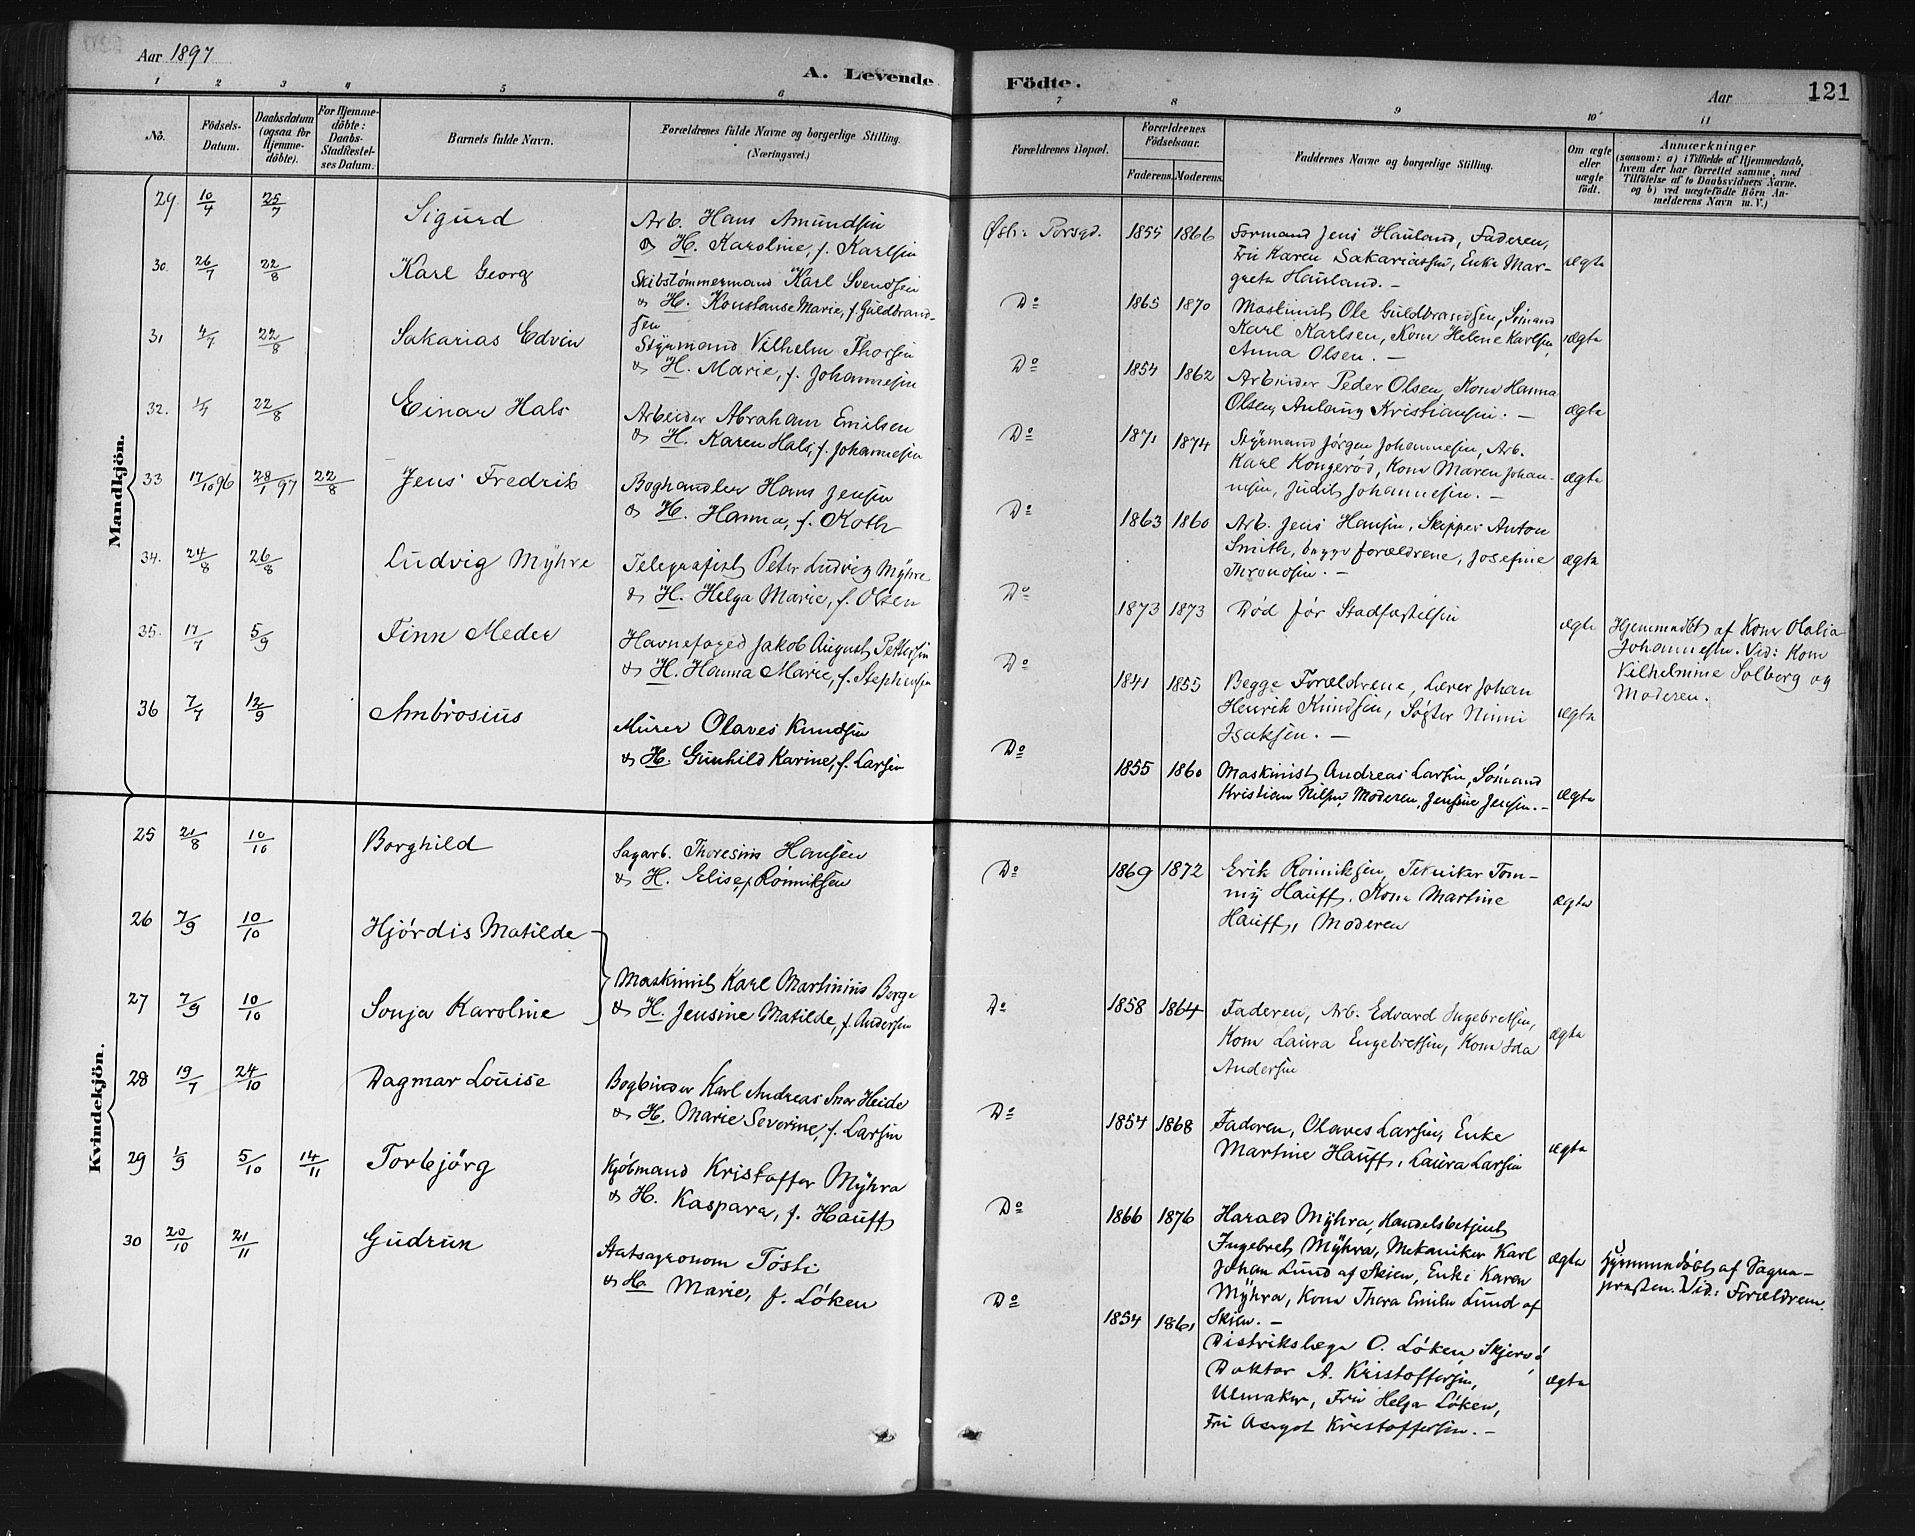 Aar 1897
A. Levende Födte.
Aar 121
1 2 3 4 5 6 7 8 9 10 11
No.
Födsels-Datum.
Daabsdatum (ogsaa for Hjemme-döbte).
For Hjemme-döbte: Daabs-Stadfæstel-ses Datum.
Barnets fulde Navn.
Forældrenes fulde Navne og borgerlige Stilling.
(Næringsvei.)
Forældrenes Bopæl.
Forældrenes Födselsaar.
Faderens. Moderens.
Faddernes Navne og borgerlige Stilling.
Om ægte eller uægte födt.
Anmærkninger
(saasom: a) i Tilfælde af Hjemmedaab,
hvem der har forrettet samme, med
Tilföielse af to Daabsvidners Navne.
og b) ved uægtefödte Börn An-
melderens Navn m. V.)
Mandkjön.
29 10/4 25/7 Sigurd
Arb. Hans Amundsen
& H. Karoline, f. Karlsen
Østr. Porsgd. 1855 1866
Formand Jens Hauland, Faderen,
Fru Karen Sakariassen, Enke Mar-
grete Hauland. —
ægte
30. 26/7 22/8 Karl Georg
Skibstømmermand Karl Svendsen
& H. Konstanse Marie, f. Guldbrand-
sen
Do 1865 1870
Maskinist Ole Guldbrandsen, Sømand
Karl Karlsen, Kone Helene Karlsen,
Anna Olsen. —
ægte
31 4/7 22/8 Sakarias Edvin
Styrmand Vilhelm Thorsen
& H. Marie, f. Johannesen
Do 1854 1862
Arbeider Peder Olsen, Kone Hanna
Olsen, Anlaug Kristiansen. —
ægte
32. 1/7 22/8 Einar Hals
Arbeider Abraham Emilsen
& H. Karen Hals, f. Johannesen
Do 1871 1874
Styrmand Jørgen Johannesen, Arb.
Karl Kongerød, Kone Maren Johan-
nesen, Judit Johannesen. —
ægte
33 17/10 96 28/1 97 22/8 Jens Fredrik
Boghandler Hans Jensen
& H. Hanna, f. Roth
Do 1863 1860
Arb. Jens Hansen, Skipper Anton
Smith, begge forældrene, Josefine
Thronsen. —
ægte
34. 24/8 26/8 Ludvig Myhre
Telegrafist Peter Ludvig Myhre
& H. Helga Marie, f. Olsen
Do 1873 1873
Død før Stadfæstelsen
ægte
Hjemmedøbt af Kone Olalia
Johannesen. Vid: Kone
Vilhelmine Solberg og
Moderen.
35. 17/7 5/9 Finn Meder
Havnefoged Jakob August Pettersen
& H. Hanna Marie, f. Stephensen
Do 1841 1855
Begge Forældrene, Lærer Johan
Henrik Knudsen, Søster Ninni
Isaksen. —
ægte
36 7/7 12/9 Ambrosius
Murer Olaves Knudsen
& H. Gunhild Karine, f. Larsen
Do 1855 1860
Maskinist Andreas Larsen, Sømand
Kristian Nilsen, Moderen, Jensine Jensen. —
ægte
Kvindekjön.
25 21/8 10/10 Borghild
Sagarb. Thoresius Hansen
& H. Elise, f. Rønniksen
Do 1869 1872
Erik Rønniksen, Tekniker Tom-
my Hauff, Kone Martine
Hauff, Moderen
ægte
26 7/9 10/10 Hjørdis Matilde
27 7/9 10/10 Sonja Karoline
Maskinist Karl Martinius Borge
& H. Jensine Matilde, f. Andersen
Do 1858 1864
Faderen, Arb. Edvard Ingebretsen,
Kone Laura Engebretsen, Kone Ida
Andersen
ægte
28 19/7 24/10 Dagmar Louise
Bogbinder Karl Andreas Heide
& H. Marie Severine, f. Larsen
Do 1854 1868
Faderen, Olaves Larsen, Enke
Martine Hauff, Laura Larsen
ægte
29 1/9 5/10 14/11 Torbjörg
Kjøbmand Kristoffer Myhra
& H. Kaspara, f. Hauff
Do 1866 1876
Harald Myhra, Handelsbetjent
Ingebret Myhra, Mekaniker Karl
Johan Lund af Skien, Enke Karen
Myhra, Kone Thora Emilie Lund af
Skien. —
ægte
Hjemmedøbt af Sogne-
presten. Vid: Forældrene.
30 20/10 21/11 Gudrun
Statsagronom Tösti
& H. Marie, f. Løken
Do 1854 1861
Distriktslæge O. Løken, Skjervø,
Doktor A. Kristoffersen,
Ulmaker, Fru Helga Løken,
Fru Aasgot Kristoffersen. —
ægte